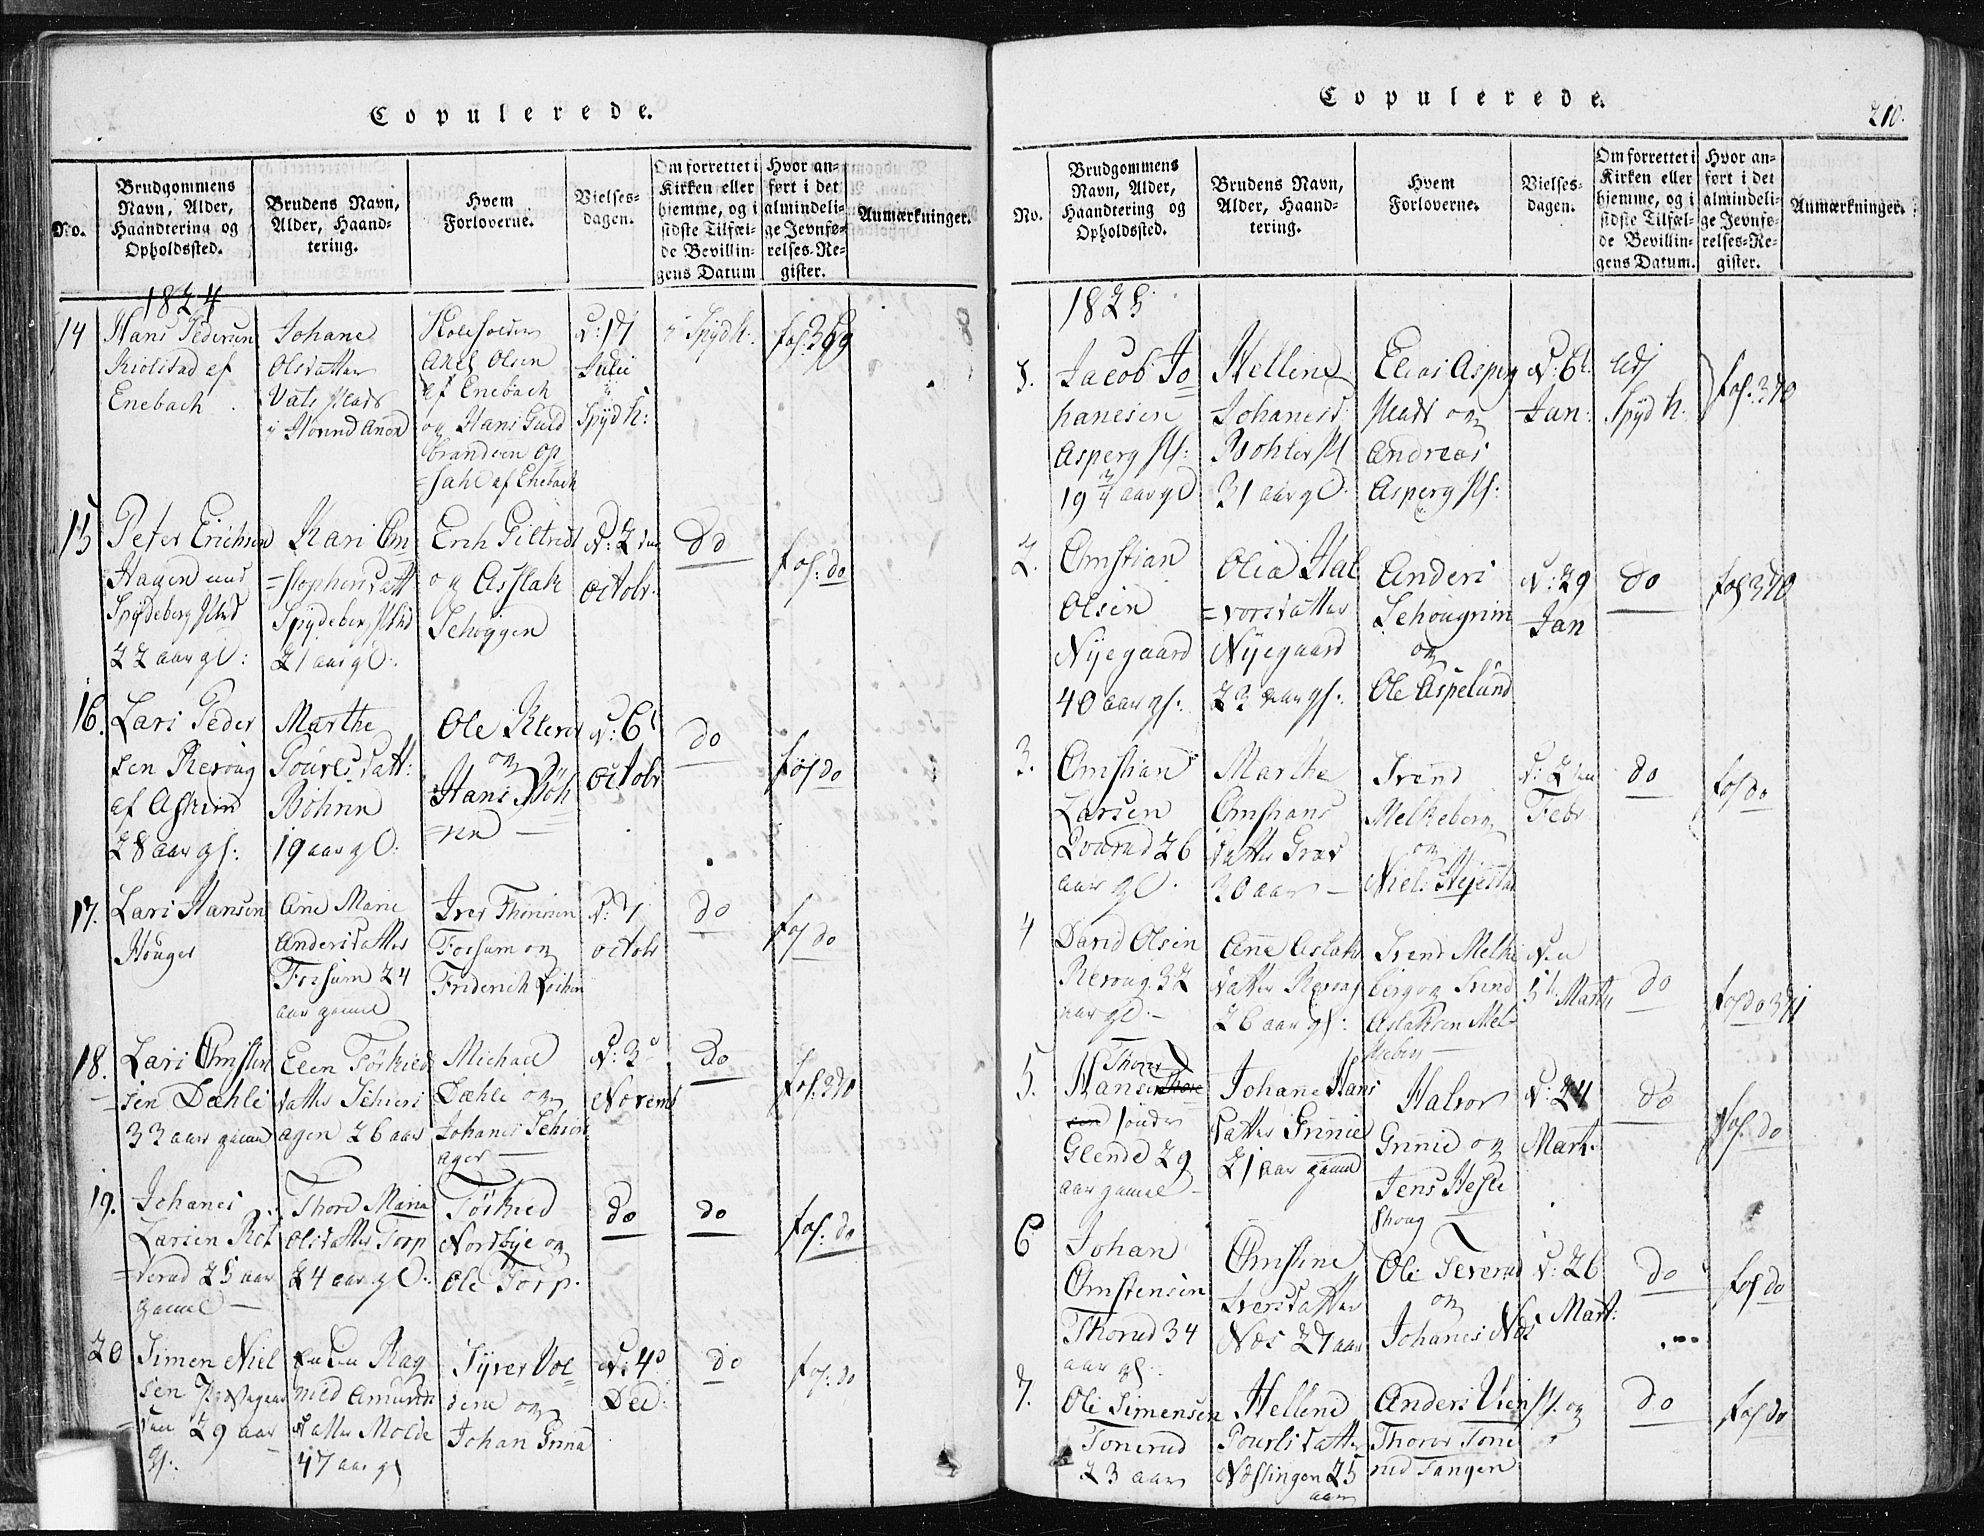 Copulerede.
No.
Brudgommens
Navn, Alder,
Haandtering og
Opholdssted.
Brudens Navn,
Alder, Haand-
tering.
Hvem
Forloverne.
Vielses-
dagen.
Om forrettet i
Kirken eller
hjemme, og i
sidste Tilfæl-
de Bevillin-
gens Datum
Hvor an-
ført i det
almindeli-
ge Jevnfø-
relses-Re-
gister.
Anmærkninger.
1824
14
Hans Pedersen
af
Enebach
Johane
Olsdatter
Plads
i
Axel Olsen
af Enebach
og Hans Guld
brandsen Op
=sahl af Enebach
D: 17
Julii
i
Spyd k:
i Spyd k:
fol. 369
15
Peter Erichsen
Hagen und
Spydeberg Præst
22 aar gl:
Kari Chri
=stophersdatt
Spydeberg
21 aar gl:
Erich
og Asslak
Schøggen
D: 2den
Octobr:
Do
fol: do
16.
Lars Peder
sen Revoug
af Askim
28 aar gl:
Marthe
Povelsdatt:
Bøhnen
19 aar gl:
Ole
og
Hans Bøh
=nen
D: 6t
Octobr
do
fol do
17.
Lars Hansen
Houger
Ane Marie
Andersdatter
Fossum 24
aar gamel
Iver
Fossum og
Friderich
D: 7
octobr
do
fol do
18.
Lars Christen
sen Dæhli
33 aar gamel
Elen Tørkild
datter Schieri
agen 26 aar
Michael
Dæhli og
Johanes Schier
ager
D: 3d
Novemb
Do
fol: 370
19.
Johanes
Larsen Rot
=verud 25 aar
gamel
Thore Maria
Olsdatter Torp
24 aar gl:
Tørkild
Nordbye og
Ole Torp.
do
do
fol: do
20
Simen Niel
sen
29 aar
gl:
Rag
nild Amunds
datter Molde
47 aar gl
Syver Vol
dene og
Johan
D: 4d
Dec:
do
fol: do
Copulerede.
210.
No.
Brudgommens
Navn, Alder,
Haandtering og
Opholdssted.
Brudens Navn,
Alder, Haand-
tering.
Hvem
Forloverne.
Vielses-
dagen.
Om forrettet i
Kirken eller
hjemme, og i
sidste Tilfæl-
de Bevillin-
gens Datum.
Hvor an-
ført i det
almindeli-
ge Jevnfø-
relses-Re-
gister.
Anmærkninger.
1825
1.
Jacob Jo
hanesen
Asperg Pl:
19 3/4 aar gl
Hellene
Johanesd:
Bøhler Pl
31 aar gl.
Elias Asperg
Plads og
Andreas
Asperg Pl:
D: 6t
Jan:
Udj
Spyd k.
fol. 370
2.
Christian
Olsen
Nyegaard
40 aar gl:
Olia Hal
=vorsdatter
Nyegaard
23 aar gl:
Anders
Schougrim
og
Ole Aspelund
D: 29
Jan
do
fol 370
3.
Christian
Larsen
26
aar gl.
Marthe
Christians
datter
30 aar
Svend
Melleberg
og
Niels
D: 2den
Febr
do
fol do
4
David Olsen
Revoug 32
aar gl.
Ane Aslaks
datter Revoug
26 aar gl:
Svend Melle
berg og Svend
Aslaksen Mel
leberg
Den
5t Marts
do
fol do 371
5.
Thorer
Hansen
sønder
Glende 29
aar gamel
Johane Hans
datter Grinie
21 aar gamel
Halvor
Grinie og
Jens Hesle
skoug
D: 24
Mart.
do
fol. do
6
Johan
Christensen
Thorud 34
aar gl.
Christine
Iversdatter
Næs 27 aar
Ole Severud
og
Johanes Næs
D: 26
Mart:
do
fol do
7.
Ole Simensen
Tonerud
23 aar
Hellene
Povelsdatter
Næslingen 25
aar
Anders Vien Pl. og
Thorer Tone
rud Tangen
do
fol do